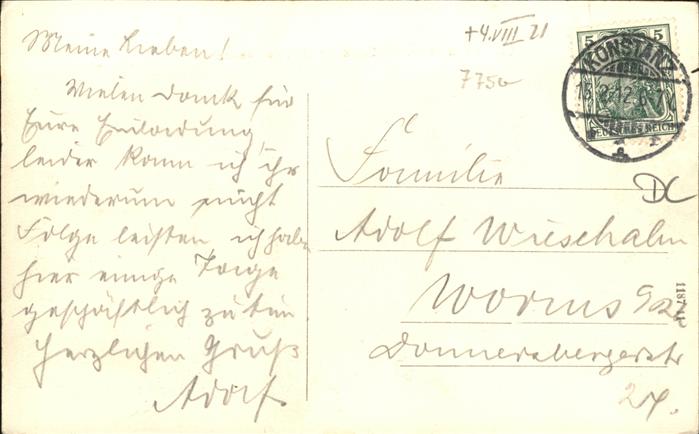 Meine Lieben!
Vielen Dank für
Eure Einladung,
leider kann ich ihr
wiederum nicht
Folge leisten, ich habe
hier einige Tage
geschäftlich zu tun
Herzlichen Gruß
Adolf
+4.VIII 21
7750
5 5
KONSTANZ
DEUTSCHES REICH
DC
Familie
Adolf
Worms a/Rh
Donnersbergerstr
24.